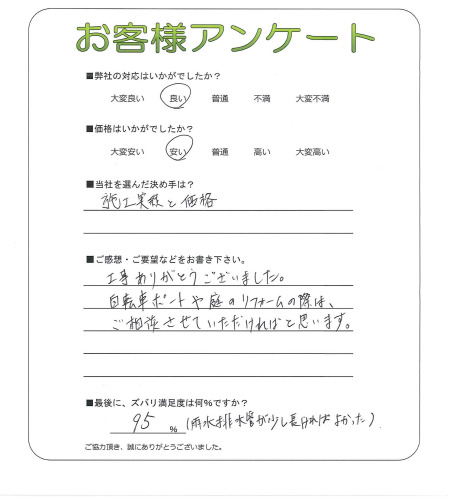 お客様アンケート
■弊社の対応はいかがでしたか？
大変良い 良い 普通 不満 大変不満
■価格はいかがでしたか？
大変安い 安い 普通 高い 大変高い
■当社を選んだ決め手は？
施工実績と価格
■ご感想・ご要望などをお書き下さい。
工事ありがとうございました。
自転車ポートや庭のリフォームの際は、
ご相談させていただければと思います。
■最後に、ズバリ満足度は何%ですか？
95 % (雨水排水管が少し長ければよかった)
ご協力頂き、誠にありがとうございました。